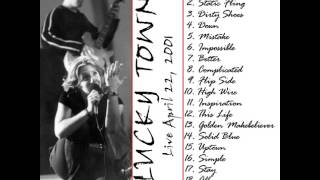 LUCKY TOWN
Live April 22, 2001
2. Static Fling
3. Dirty Shoes
4. Down
5. Mistake
6. Impossible
7. Better
8. Complicated
9. Flip Side
10. High Wire
11. Inspiration
12. This Life
13. Golden Makebeliever
14. Solid Blue
15. Uptown
16. Simple
17. Stay
18.